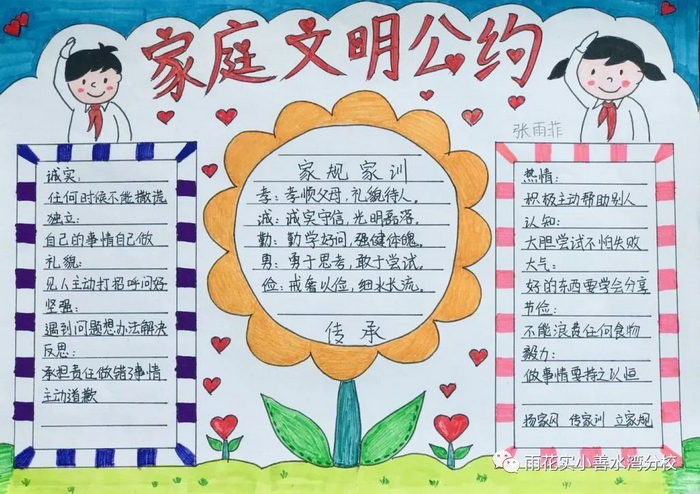 家庭文明公约
张雨菲
诚实:
任何时候不能撒谎
独立:
自己的事情自己做
礼貌:
见人主动打招呼问好
坚强:
遇到问题想办法解决
反思:
承担责任做错了事情
主动道歉
家规家训
孝:孝顺父母,礼貌待人。
诚:诚实守信,光明磊落。
勤:勤学好问,强健体魄。
勇:勇于思考,敢于尝试。
俭:戒奢以俭,细水长流。
传承
热情:
积极主动帮助别人
认知:
大胆尝试不怕失败
大气:
好的东西要学会分享
节俭:
不能浪费任何食物
毅力:
做事情要持之以恒
扬家风 传家训 立家规
雨花实小善水湾分校